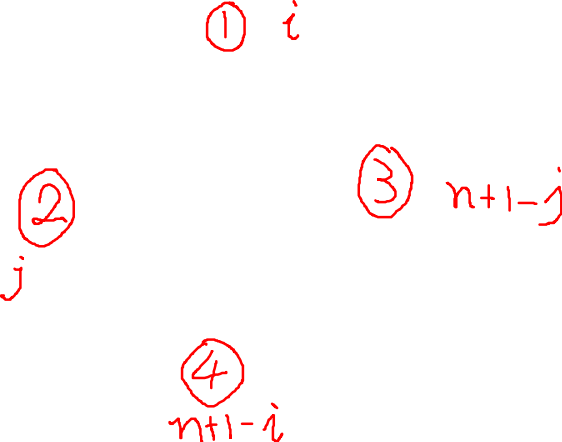 ① i
② j
③ n+1-j
④ n+1-i